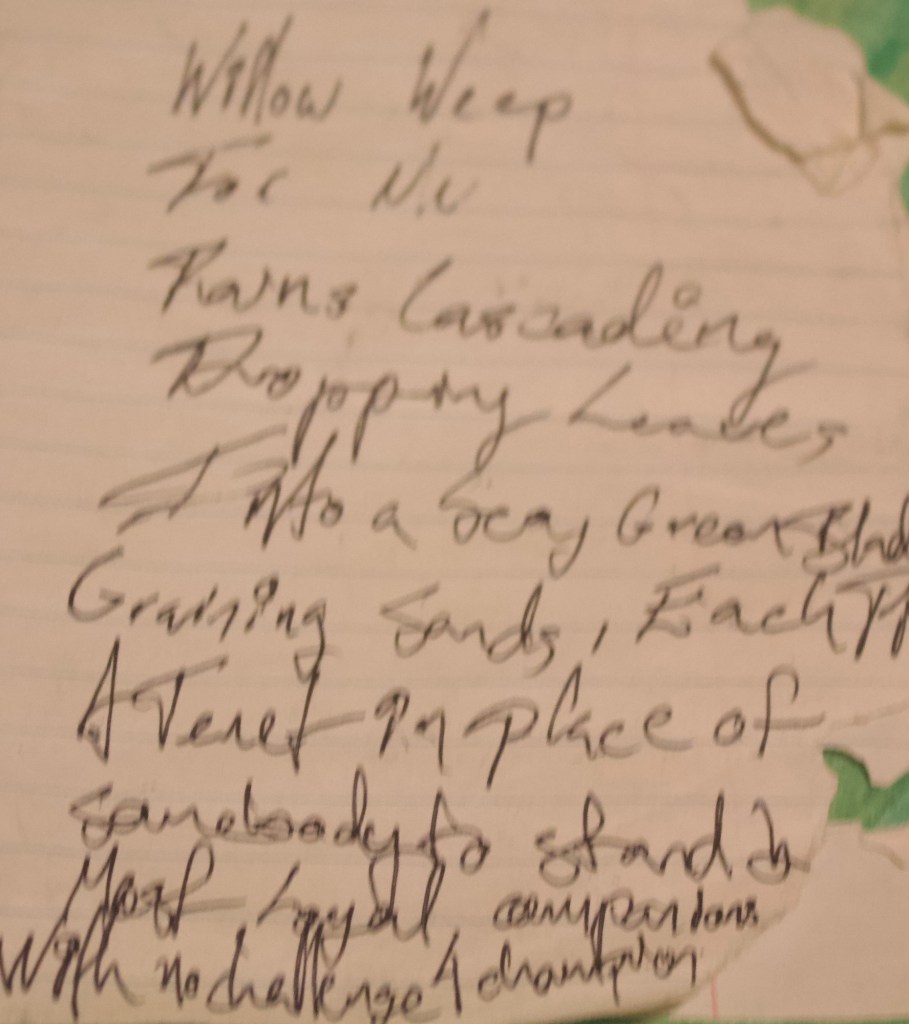 Willow Weep
For N.U
Rains Cascading
Dropping Leaves
Into a Sea, Green
Graining Sands, Each
A Tenet in place of
somebody to stand in
Most Loyal companions
With no challenge 4 champion